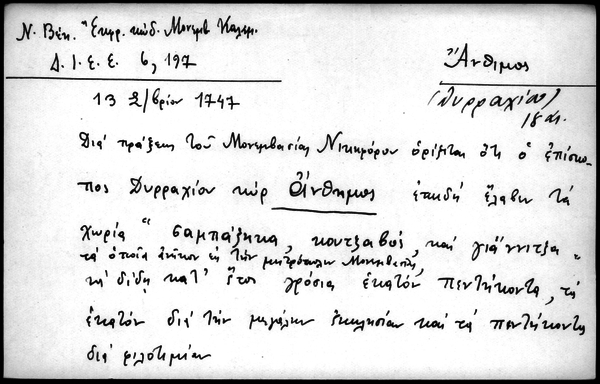 Ν. Βέη. "Έκφρ. κώδ. Μονεμβ. Καλαμ.
Δ. Ι. Ε. Ε. 6, 197
Ἄνθιμος
(Δυρραχίου)
18 αι.
13 2/βρίου 1747
Διά πράξεως τοῦ Μονεμβασίας Νικηφόρου ὁρίζεται ὅτι ὁ ἐπίσκο-
πος Δυρραχίου κύρ Ἄνθημος ἐπειδή ἔλαβεν τά
χωρία "σαμπάζηκα, κουτζαβά, καί γιάννιτζα"
τά ὁποῖα ἀνῆκον εἰς τήν μητρόπολιν Μονεμβασίας,
νά δίδῃ κατ' ἔτος γρόσια ἑκατόν πεντήκοντα, τά
ἑκατόν διά τήν μεγάλην ἐκκλησίαν καί τά πεντήκοντα
διά φιλοτιμίαν